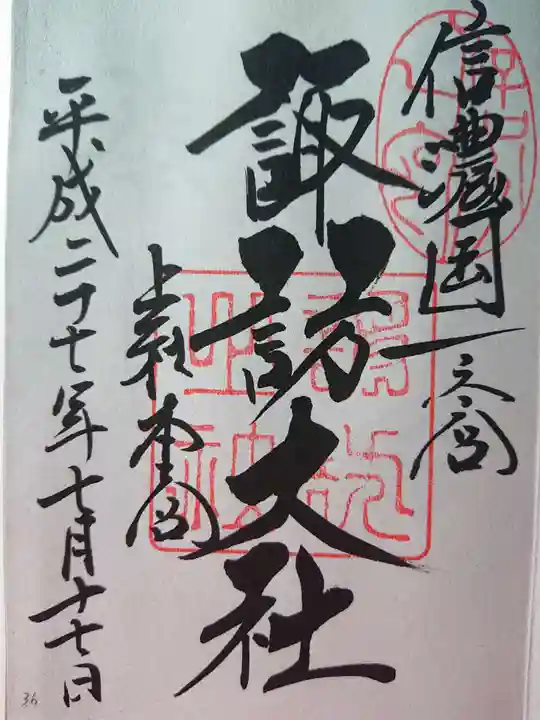 信濃國一之宮
諏訪大社
上社本宮
平成二十七年七月十七日
36